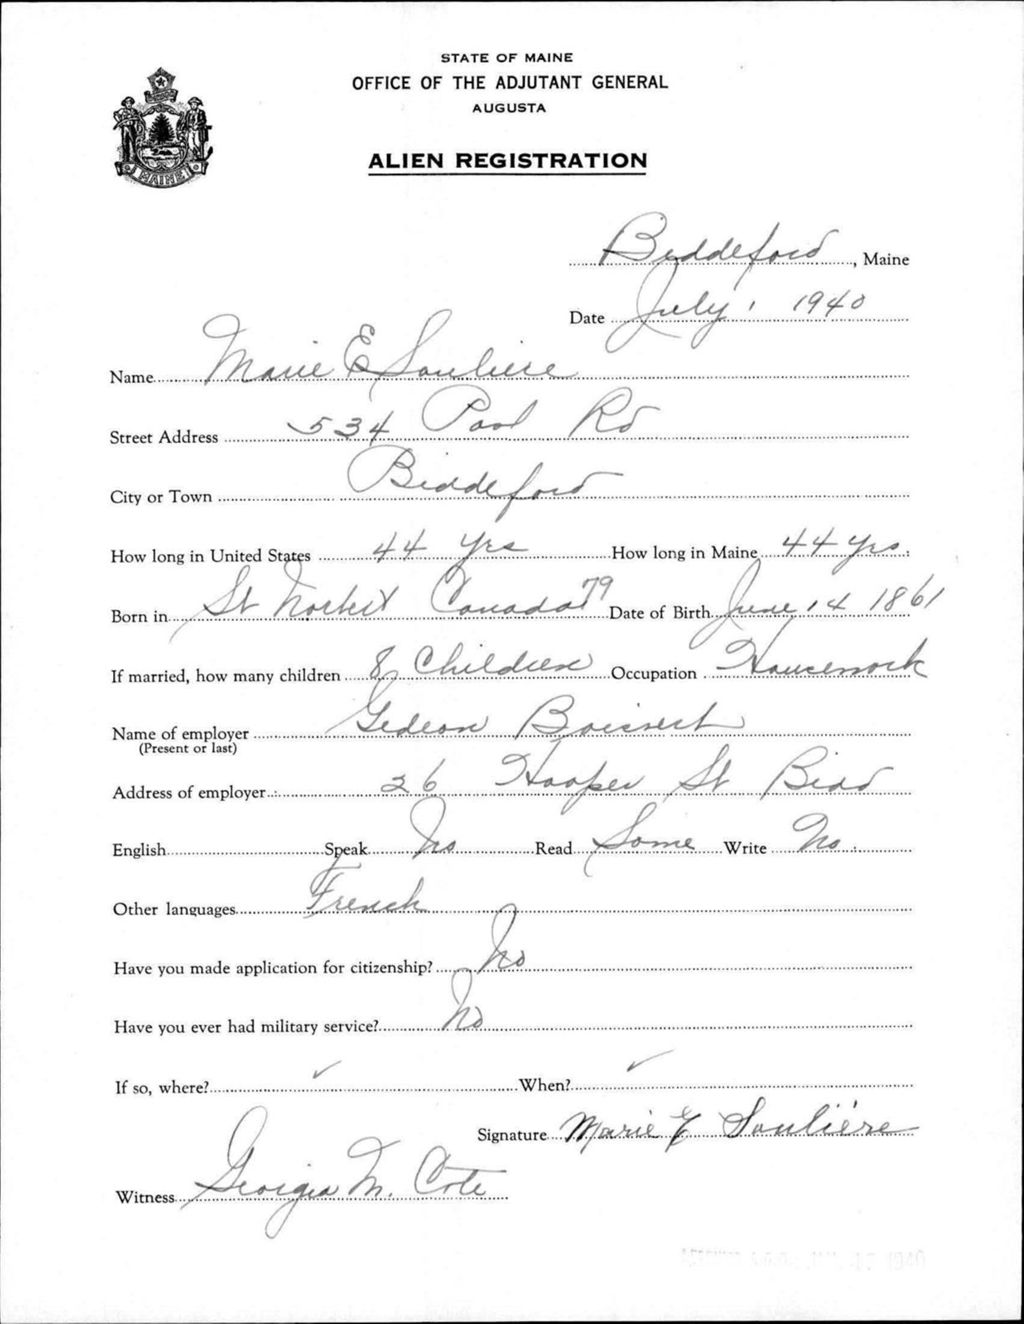 STATE OF MAINE
OFFICE OF THE ADJUTANT GENERAL
AUGUSTA
MAINE
ALIEN REGISTRATION
Biddeford, Maine
Date July 1 1940
Name Marie E Souliere
Street Address 534 Pool Rd
City or Town Biddeford
How long in United States 44 yrs How long in Maine 44 yrs.
Born in St Norbert Canada 79 Date of Birth June 14 1861
If married, how many children 8 Children Occupation Housework
Name of employer Gedeon Boisvert
(Present or last)
Address of employer 26 Hooper St Bidd
English Speak No Read Some Write No
Other languages French
Have you made application for citizenship? No
Have you ever had military service? No
If so, where? ✓ When? ✓
Signature Marie E Souliére
Witness Georgia M. Cote